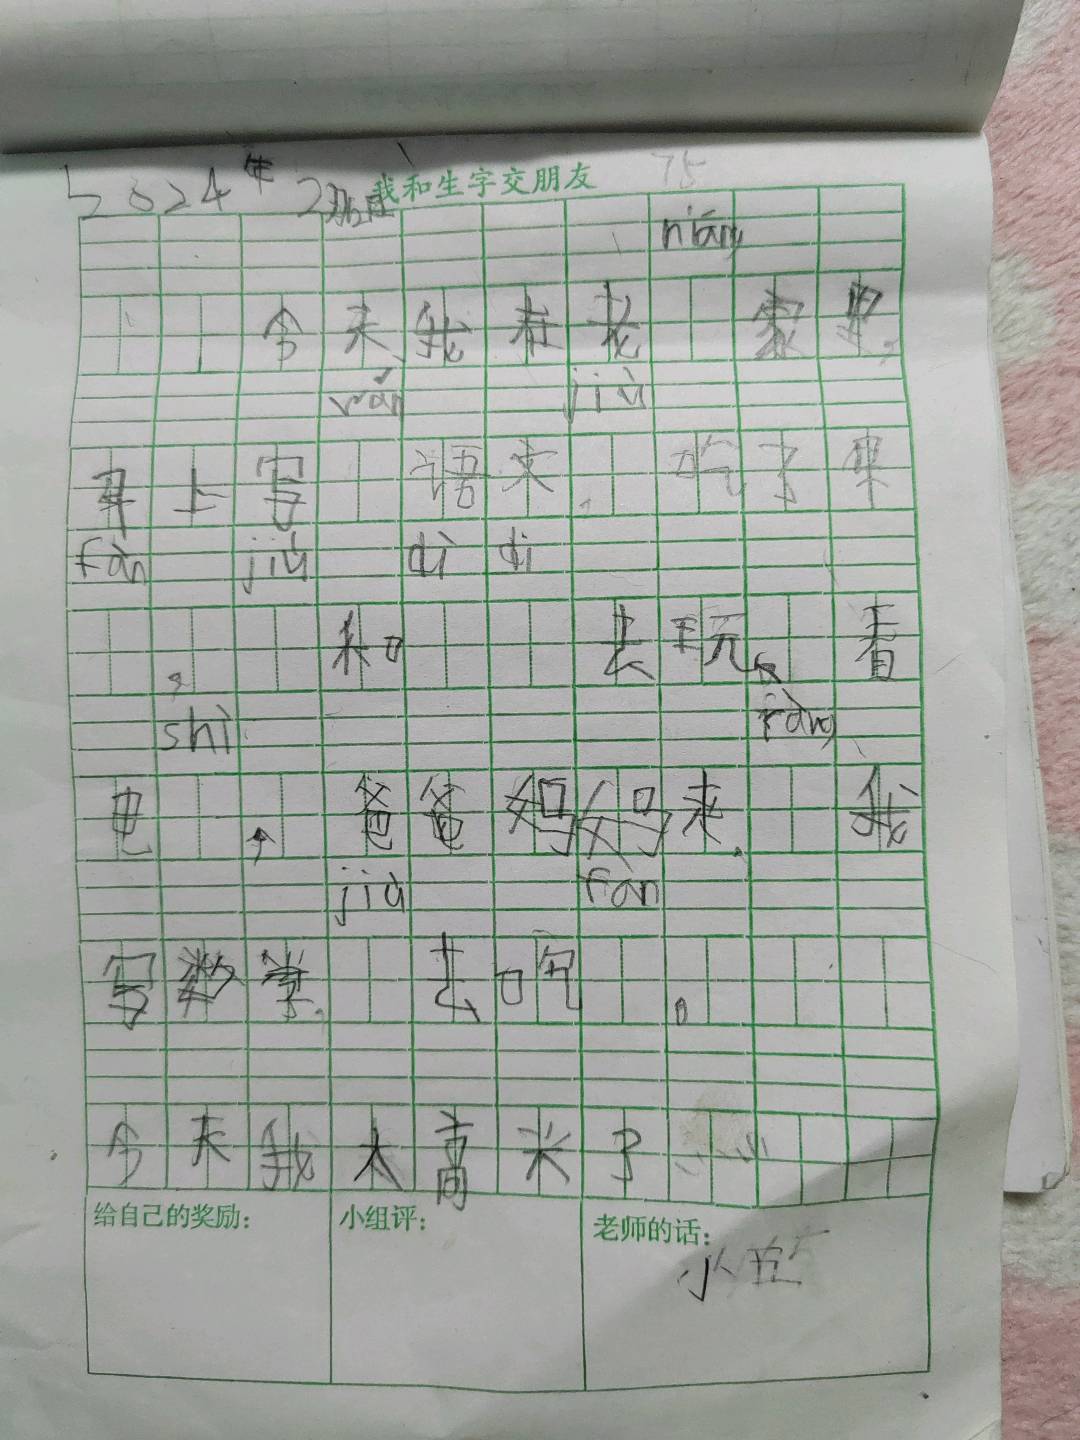 2024年2
我和生字交朋友
75
niáng
今天我在老 家里,
wǎn jiù
早上写 语文, 吃了早
fàn jiù dì di
, 和 去玩, 看
shì fàng
电 , 爸爸妈妈来. 我
jiù fàn
写数学. 去吃 。
今天我太高兴了
给自己的奖励:
小组评:
老师的话: